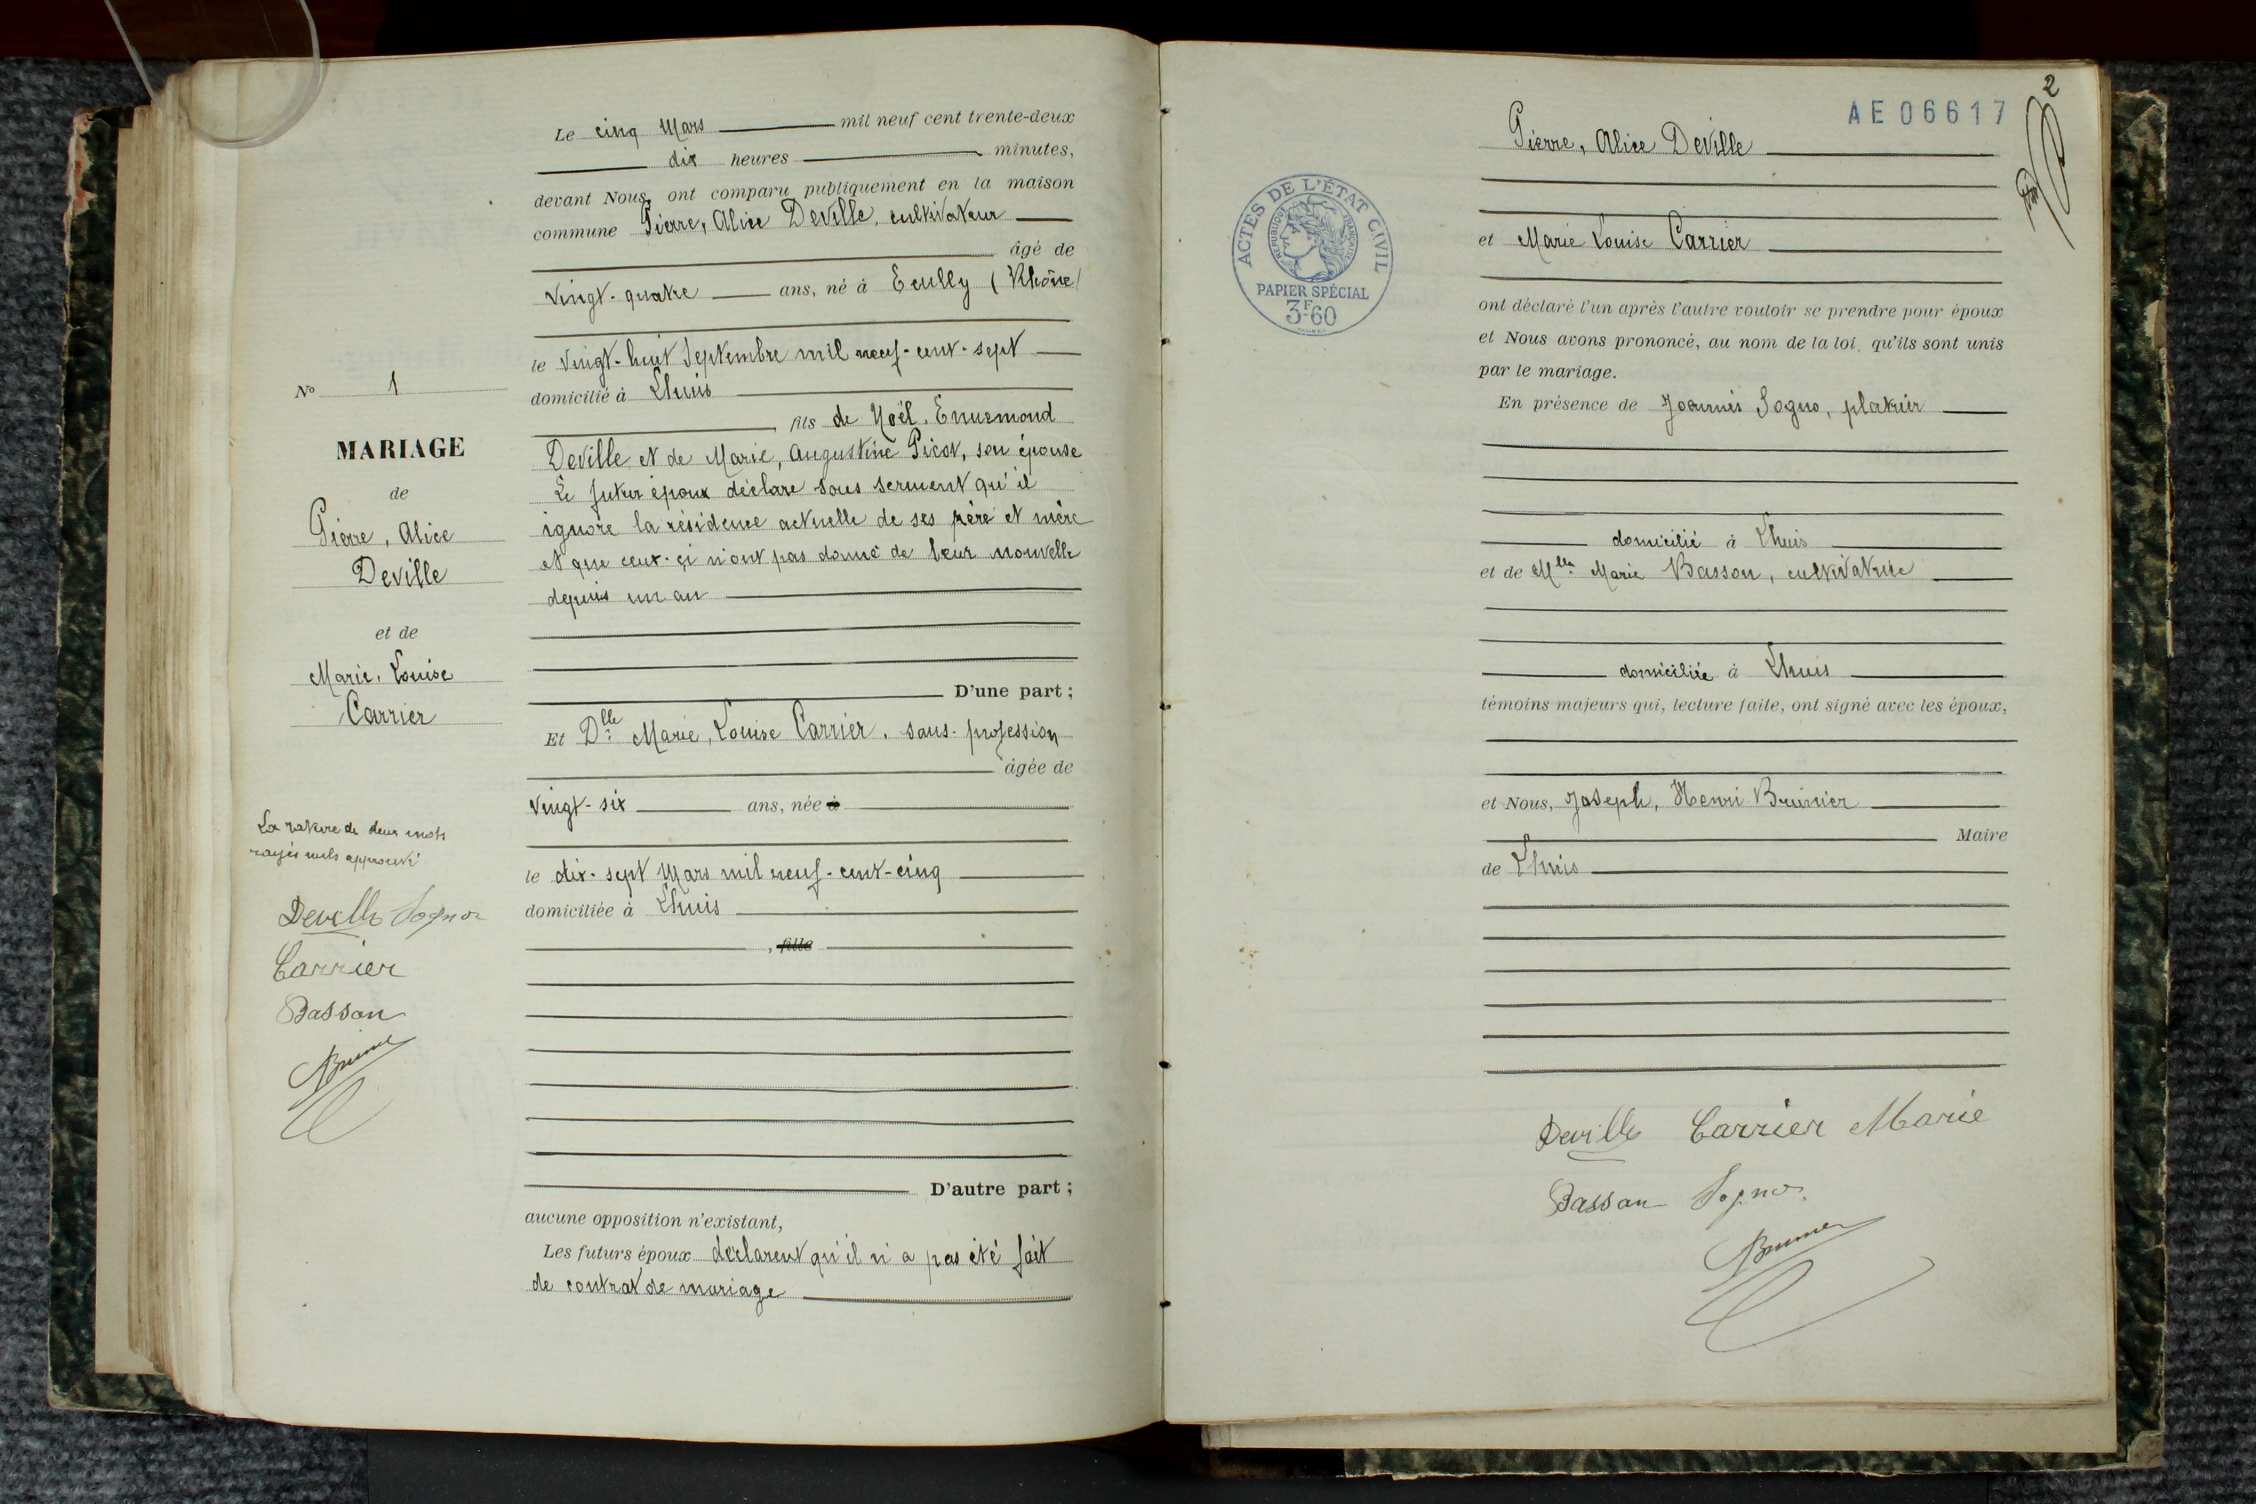 Le cinq Mars mil neuf cent trente-deux
dix heures minutes,
devant Nous, ont comparu publiquement en la maison
commune Pierre, Alice Deville, cultivateur
âgé de
vingt-quatre ans, né à Ecully (Rhône)
le vingt-huit Septembre mil neuf-cent-sept
domicilié à Lhuis
fils de Noël, Ennemond
Deville et de Marie, Augustine Picot, son épouse
Le futur époux déclare sous serment qu'il
ignore la résidence actuelle de ses père et mère
et que ceux-çi n'ont pas donné de leur nouvelle
depuis un an
D'une part ;
Et Dlle Marie, Louise Carrier, sans-profession
âgée de
vingt-six ans, née à
le dix-sept Mars mil neuf-cent-cinq
domiciliée à Lhuis
, fille
D'autre part ;
aucune opposition n'existant,
Les futurs époux déclarent qu'il n'a pas été fait
de contrat de mariage
No 1
MARIAGE
de
Pierre, Alice
Deville
et de
Marie, Louise
Carrier
La rature de deux mots
rayés nuls approuvé
Deville Sogno
Carrier
Basson
Brunier
2
AE06617
ACTES DE L'ÉTAT CIVIL
RÉPUBLIQUE FRANÇAISE
PAPIER SPÉCIAL
3F60
Pierre, Alice Deville
et Marie Louise Carrier
ont déclaré l'un après l'autre vouloir se prendre pour époux
et Nous avons prononcé, au nom de la loi, qu'ils sont unis
par le mariage.
En présence de Joannès Sogno, plâtrier
domicilié à Lhuis
et de Mlle Marie Basson, cultivatrice
domiciliée à Lhuis
témoins majeurs qui, lecture faite, ont signé avec les époux,
et Nous, Joseph, Henri Brunier
Maire
de Lhuis
Deville Carrier Marie
Basson Sogno
Brunier